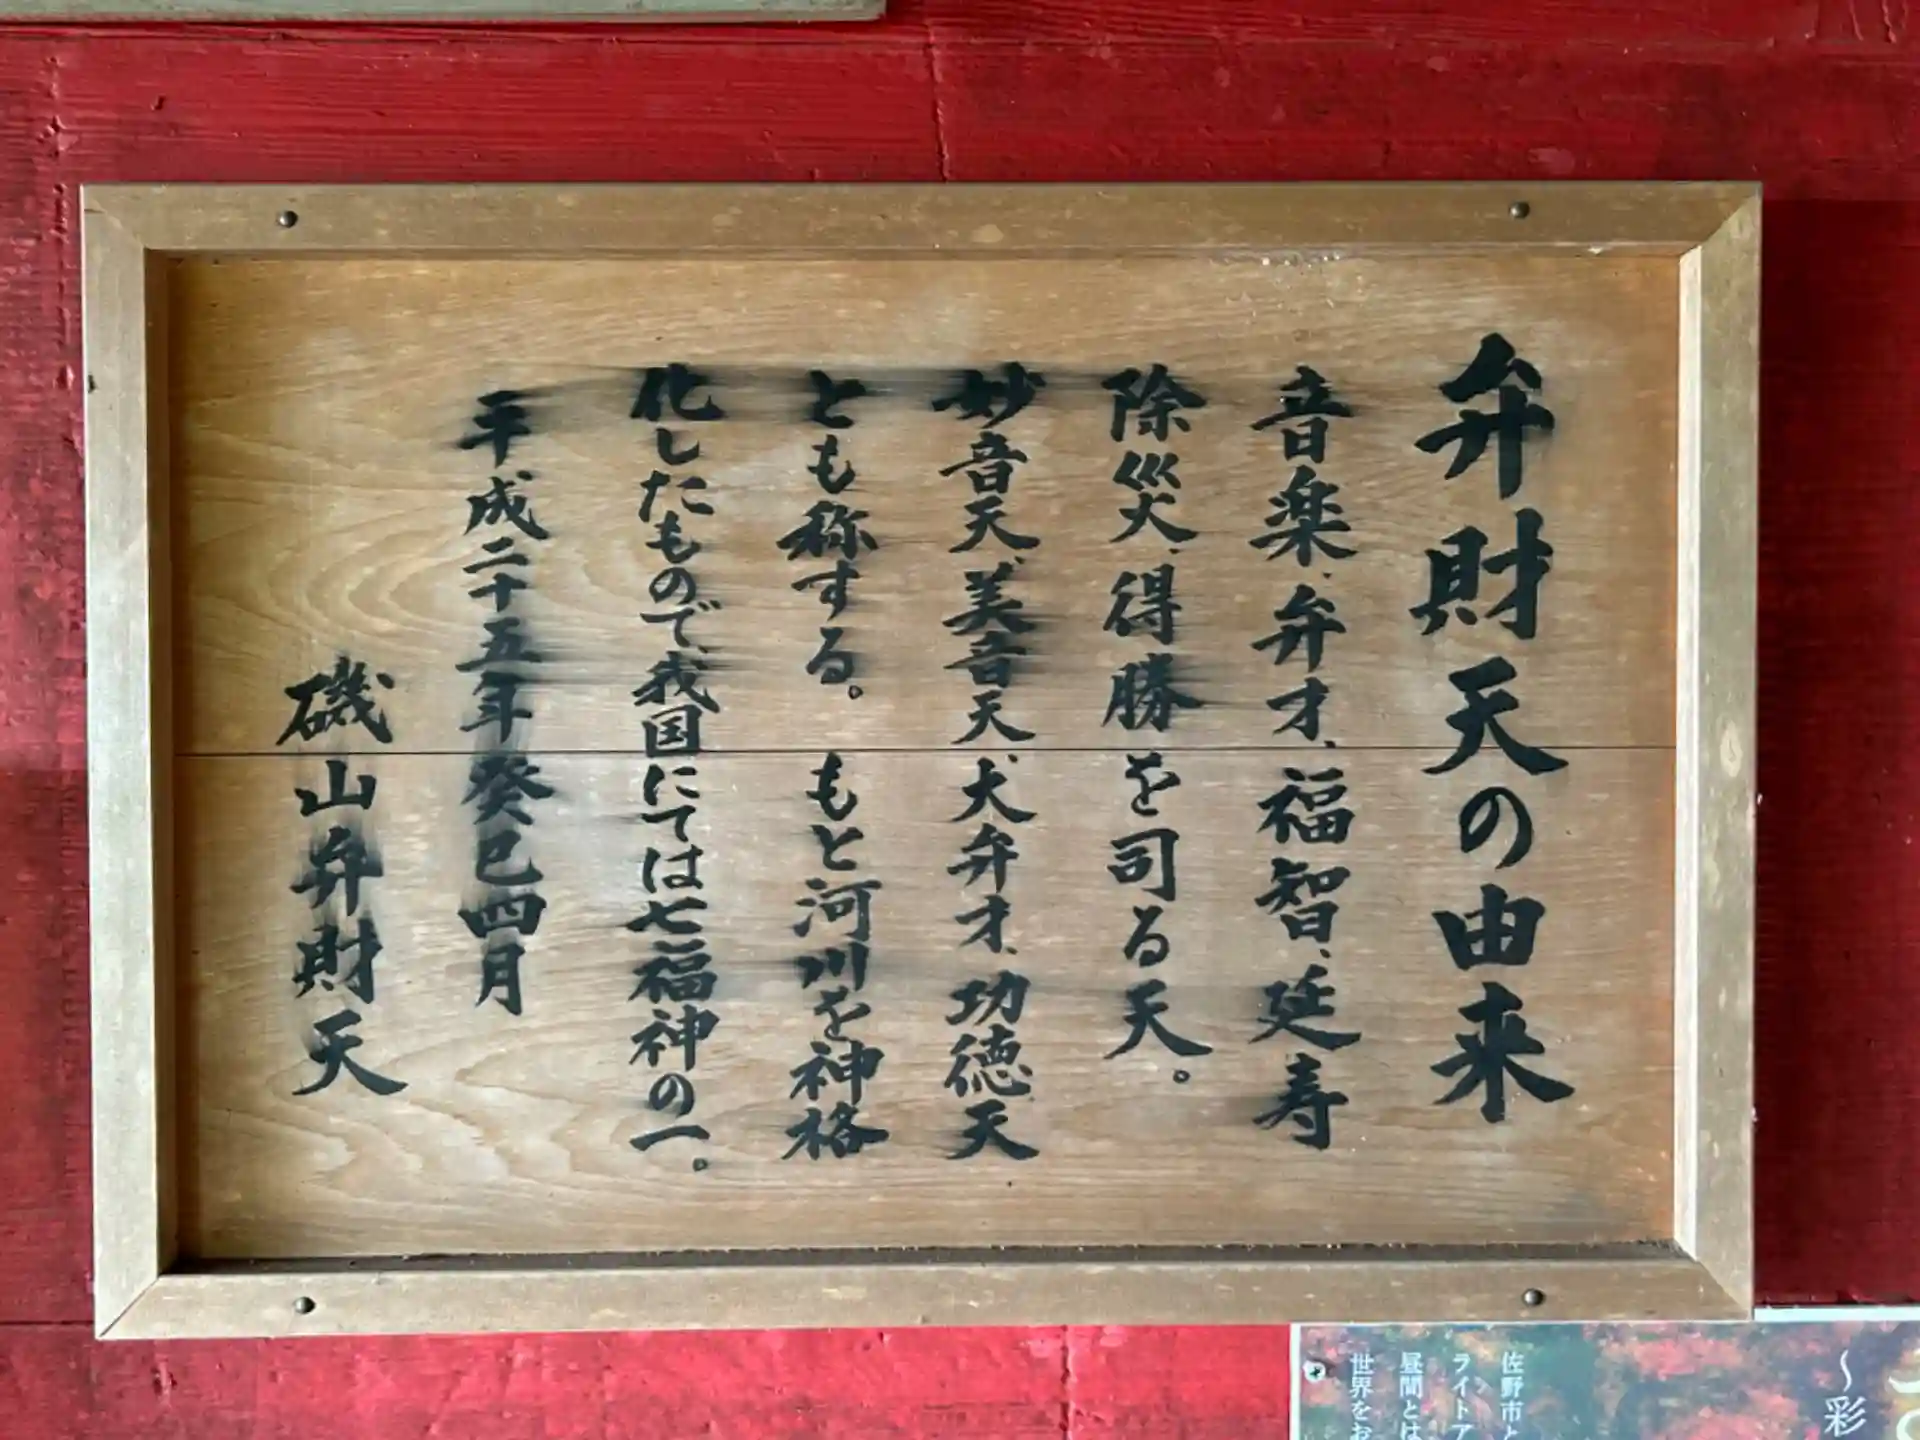 弁財天の由来
音楽、弁才、福智、延寿
除災、得勝を司る天。
妙音天、美音天、大弁才、功徳天
とも称する。 もと河川を神格
化したもので、我国にては七福神の一。
平成二十五年癸巳四月
磯山弁財天
~彩
佐野市と
ライトア
昼間とは
世界をお